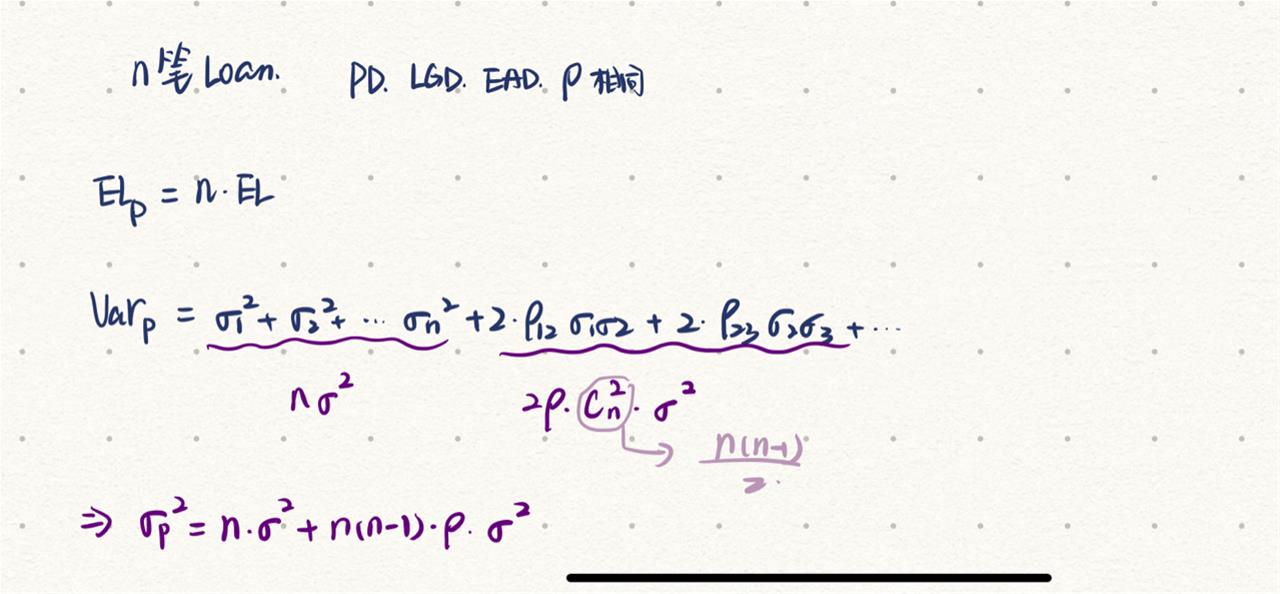 n笔 Loan. PD. LGD. EAD. ρ 相同
EL_p = n · EL
Var_p = σ₁² + σ₂² + ... σn² + 2 · ρ₁₂ σ₁σ2 + 2 · ρ₂₃ σ₂σ₃ + ...
nσ² 2ρ · C_n² · σ²
n(n-1)
2
⇒ σ_p² = n · σ² + n(n-1) · ρ · σ²